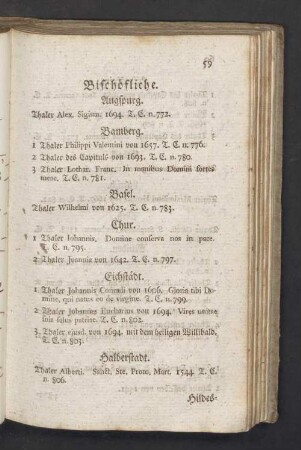 59
Bischöfliche.
Augspurg.
Thaler Alex. Sigism. 1694. T. C. n. 772.
Bamberg.
1 Thaler Philippi Valentini von 1657. T. C. n. 776.
2 Thaler des Capituls von 1693. T. C. n. 780.
3 Thaler Lothar. Franc. In manibus Domini sortes
meae. T. C. n. 781.
Basel.
Thaler Wilhelmi von 1625. T. C. n. 783.
Chur.
1 Thaler Iohannis, Domine conserva nos in pace.
T. C. n. 795.
2 Thaler Joannis von 1642. T. C. n. 797.
Eichstädt.
1 Thaler Johannis Conradi von 1606. Gloria tibi Do-
mine, qui natus es de virgine. T. C. n. 799.
2 Thaler Johannes Eucharius von 1694. Vires
patriae. T. C. n. 802.
3 Thaler ejusd. von 1694. mit dem heiligen Willibald.
T. C. n. 803.
Halberstadt.
Thaler Alberti. Sanct. Ste. Proto. Mart. 1544. T. C.
n. 806.
Hildes-